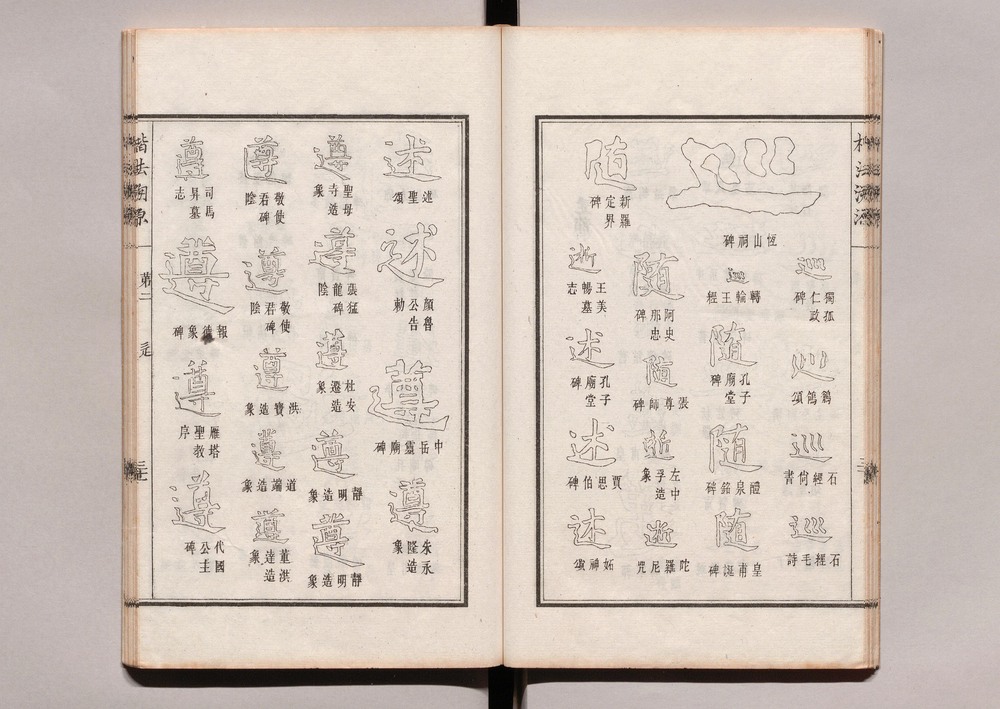 巡
獨孤仁政碑
巡
鶺鴒頌
巡
石經尙書
巡
石經毛詩
巡
恆山祠碑
巡
轉輪王經
随
孔子廟堂碑
随
醴泉銘碑
随
皇甫誕碑
随
新羅定界碑
随
阿史那忠碑
随
張尊師碑
逝
左中孚造象
逝
陀羅尼咒
逝
王美暢墓志
述
孔子廟堂碑
述
賈思伯碑
述
妬神頌
述
述聖頌
述
顏魯公告勅
遵
中岳靈廟碑
遵
朱永隆造象
遵
聖母寺造象
遵
張猛龍碑陰
遵
杜安遷造象
遵
靜明造象
遵
靜明造象
遵
敬使君碑陰
遵
敬使君碑陰
遵
洪寶造象
遵
道端造象
遵
董洪達造象
遵
司馬昇墓志
遵
報德象碑
遵
雁塔聖教序
遵
代國公主碑
楷法溯源
第二
辵